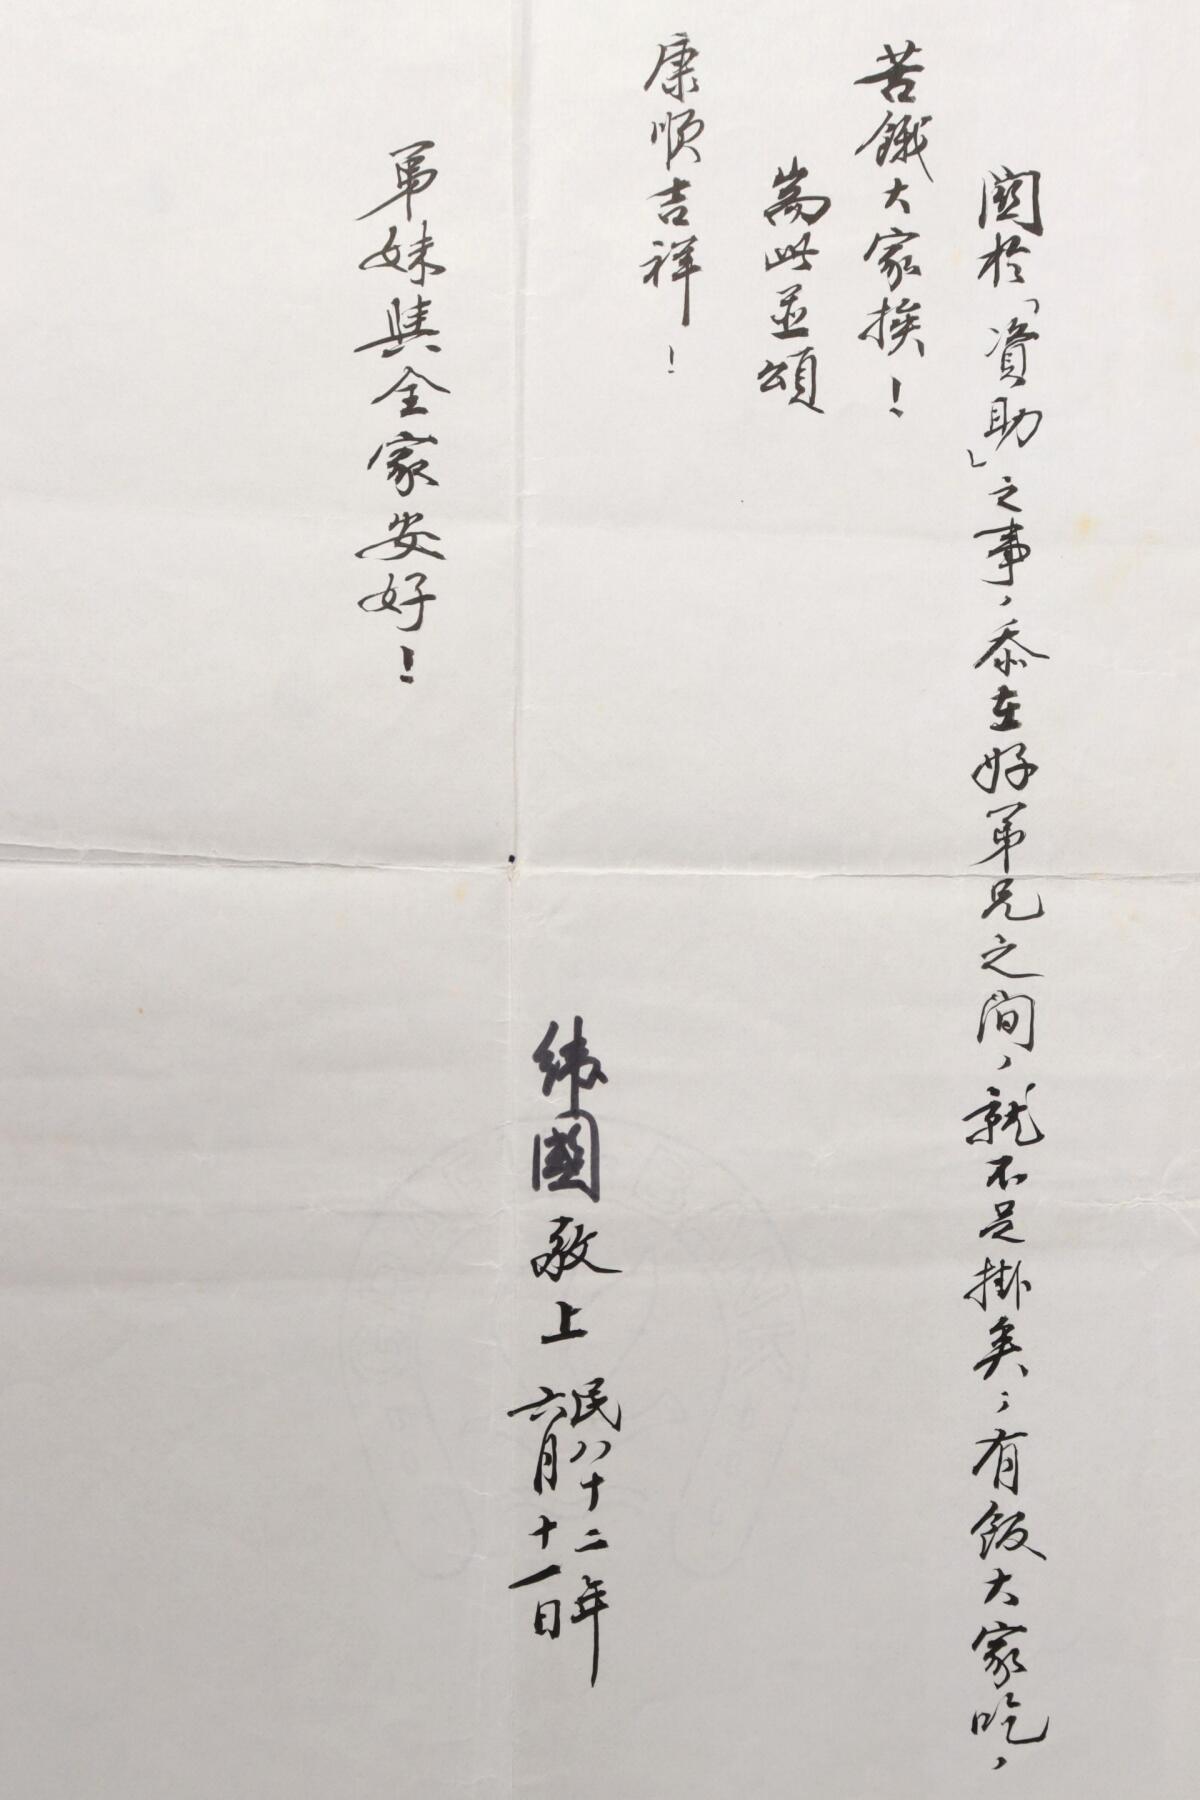 關於「資助」之事，忝在好弟兄之間，就不足掛矣；有飯大家吃，
苦餓大家挨！
耑此並頌
康順吉祥！
緯國敬上
民八十二年
六月十一日
弟妹與全家安好！